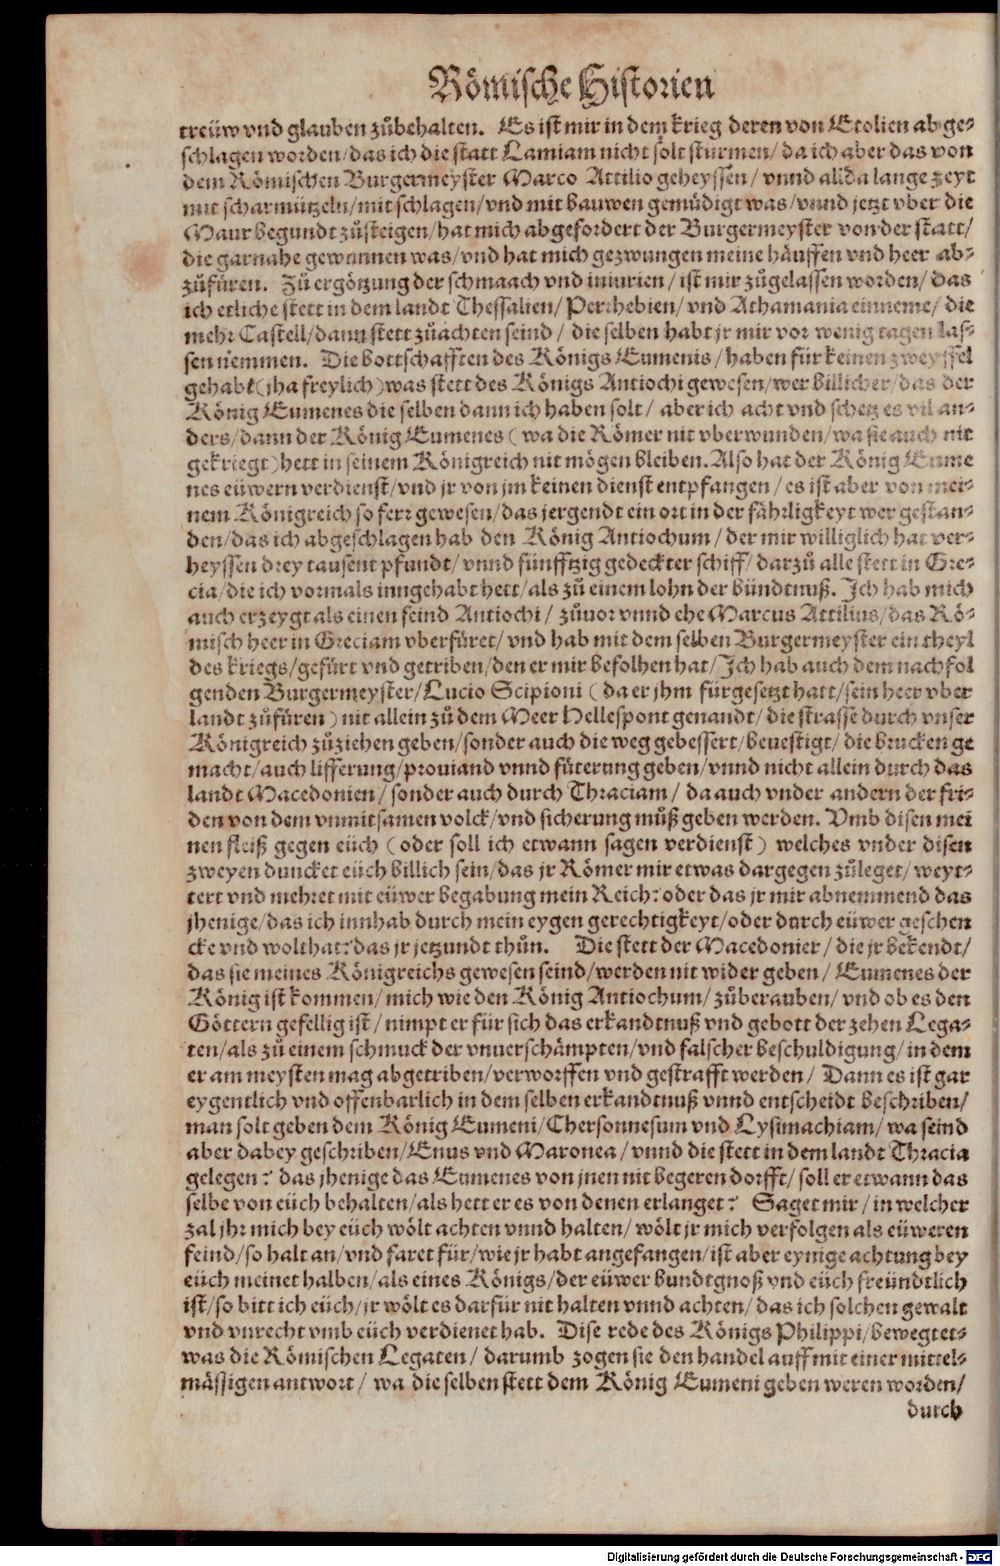 Römische Historien
treüw vnd glauben zůbehalten. Es ist mir in dem krieg deren von Etolien abge⸗
schlagen worden/das ich die statt Lamiam nicht solt stürmen/da ich aber das von
dem Römischen Burgermeyster Marco Attilio geheyssen/vnnd allda lange zeyt
mit scharmützeln/mit schlagen/vnd mit bauwen gemüdigt was/vnnd jetzt vber die
Maur begundt zůsteigen/hat mich abgefordert der Burgermeyster von der statt/
die gar nahe gewunnen was/vnd hat mich gezwungen meine häuffen vnd heer ab⸗
zůfüren. Zů ergötzung der schmaach vnd iniurien/ist mir zůgelassen worden/das
ich etliche stett in dem landt Thessalien/Perrhebien/vnd Athamania einneme/die
mehr Castell/dann stett zůachten seind/die selben habt jr mir vor wenig tagen las⸗
sen nemmen. Die bottschafften des Königs Eumenis/haben für keinen zweyffel
gehabt (jha freylich) was stett des Königs Antiochi gewesen/wer billicher/das der
König Eumenes die selben dann ich haben solt/aber ich acht vnd schetz es vil an⸗
ders/dann der König Eumenes (wa die Römer nit vberwunden/wa sie auch nit
gekriegt) hett in seinem Königreich nit mögen bleiben. Also hat der König Eume
nes eüwern verdienst/vnd jr von jm keinen dienst entpfangen/es ist aber von mei⸗
nem Königreich so ferr gewesen/das jergendt ein ort in der fährligkeyt wer gestan⸗
den/das ich abgeschlagen hab den König Antiochum/der mir williglich hat ver⸗
heyssen drey tausent pfundt/vnnd fünfftzig gedeckter schiff/darzů alle stett in Gre⸗
cia/die ich vormals inngehabt hett/als zů einem lohn der bündtnuß. Ich hab mich
auch erzeygt als einen feind Antiochi/zůuor vnnd ehe Marcus Attilius/das Rö⸗
misch heer in Greciam vberfüret/vnd hab mit dem selben Burgermeyster ein theyl
des kriegs/gefürt vnd getriben/den er mir befolhen hat/Ich hab auch dem nachfol
genden Burgermeyster/Lucio Scipioni (da er jhm fürgesetzt hatt/sein heer vber
landt zůfüren) nit allein zů dem Meer Hellespont genandt/die strasse durch vnser
Königreich zůziehen geben/sonder auch die weg gebessert/beuestigt/die brucken ge
macht/auch lifferung/prouiand vnnd fůterung geben/vnnd nicht allein durch das
landt Macedonien/sonder auch durch Thraciam/da auch vnder andern der fri⸗
den von dem vnmitsamen volck/vnd sicherung můß geben werden. Vmb disen mei
nen fleiß gegen eüch (oder soll ich etwann sagen verdienst) welches vnder disen
zweyen duncket eüch billich sein/das jr Römer mir etwas dargegen zůleget/weyt⸗
tert vnd mehret mit eüwer begabung mein Reich? oder das jr mir abnemmend das
jhenige/das ich innhab durch mein eygen gerechtigkeyt/oder durch eüwer geschen
cke vnd wolthat? das jr jetzundt thůn. Die stett der Macedonier/die jr bekendt/
das sie meines Königreichs gewesen seind/werden nit wider geben/Eumenes der
König ist kommen/mich wie den König Antiochum/zůberauben/vnd ob es den
Göttern gefellig ist/nimpt er für sich das erkandtnuß vnd gebott der zehen Lega⸗
ten/als zů einem schmuck der vnuerschämpten/vnd falscher beschuldigung/in dem
er am meysten mag abgetriben/verworffen vnd gestrafft werden/Dann es ist gar
eygentlich vnd offenbarlich in dem selben erkandtnuß vnnd entscheidt beschriben/
man solt geben dem König Eumeni/Chersonnesum vnd Lysimachiam/wa seind
aber dabey geschriben/Enus vnd Maronea/vnnd die stett in dem landt Thracia
gelegen? das jhenige das Eumenes von jnen nit begeren dorfft/soll er etwann das
selbe von eüch behalten/als hett er es von denen erlanget? Saget mir/in welcher
zal jhr mich bey eüch wölt achten vnnd halten/wölt jr mich verfolgen als eüweren
feind/so halt an/vnd faret für/wie jr habt angefangen/ist aber eynige achtung bey
eüch meinet halben/als eines Königs/der eüwer bundtgnoß vnd eüch freündtlich
ist/so bitt ich eüch/jr wölt es darfür nit halten vnnd achten/das ich solchen gewalt
vnd vnrecht vmb eüch verdienet hab. Dise rede des Königs Philippi/bewegt et⸗
was die Römischen Legaten/darumb zogen sie den handel auff mit einer mittel⸗
mässigen antwort/wa die selben stett dem König Eumeni geben weren worden/
durch
Digitalisierung gefördert durch die Deutsche Forschungsgemeinschaft - DFG